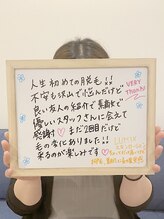 人生初めての脱毛!!
不安も沢山で悩んだけど
良い友人の紹介で素敵で
優しいスタッフさんに会えて
感謝♡まだ2回目だけど
毛の変化ありました!!
来るのが楽しみです
VERY
THANKS